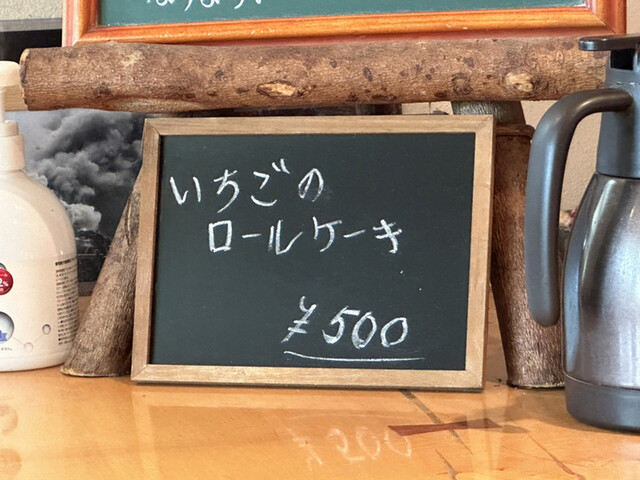 いちごの
ロールケーキ
¥500